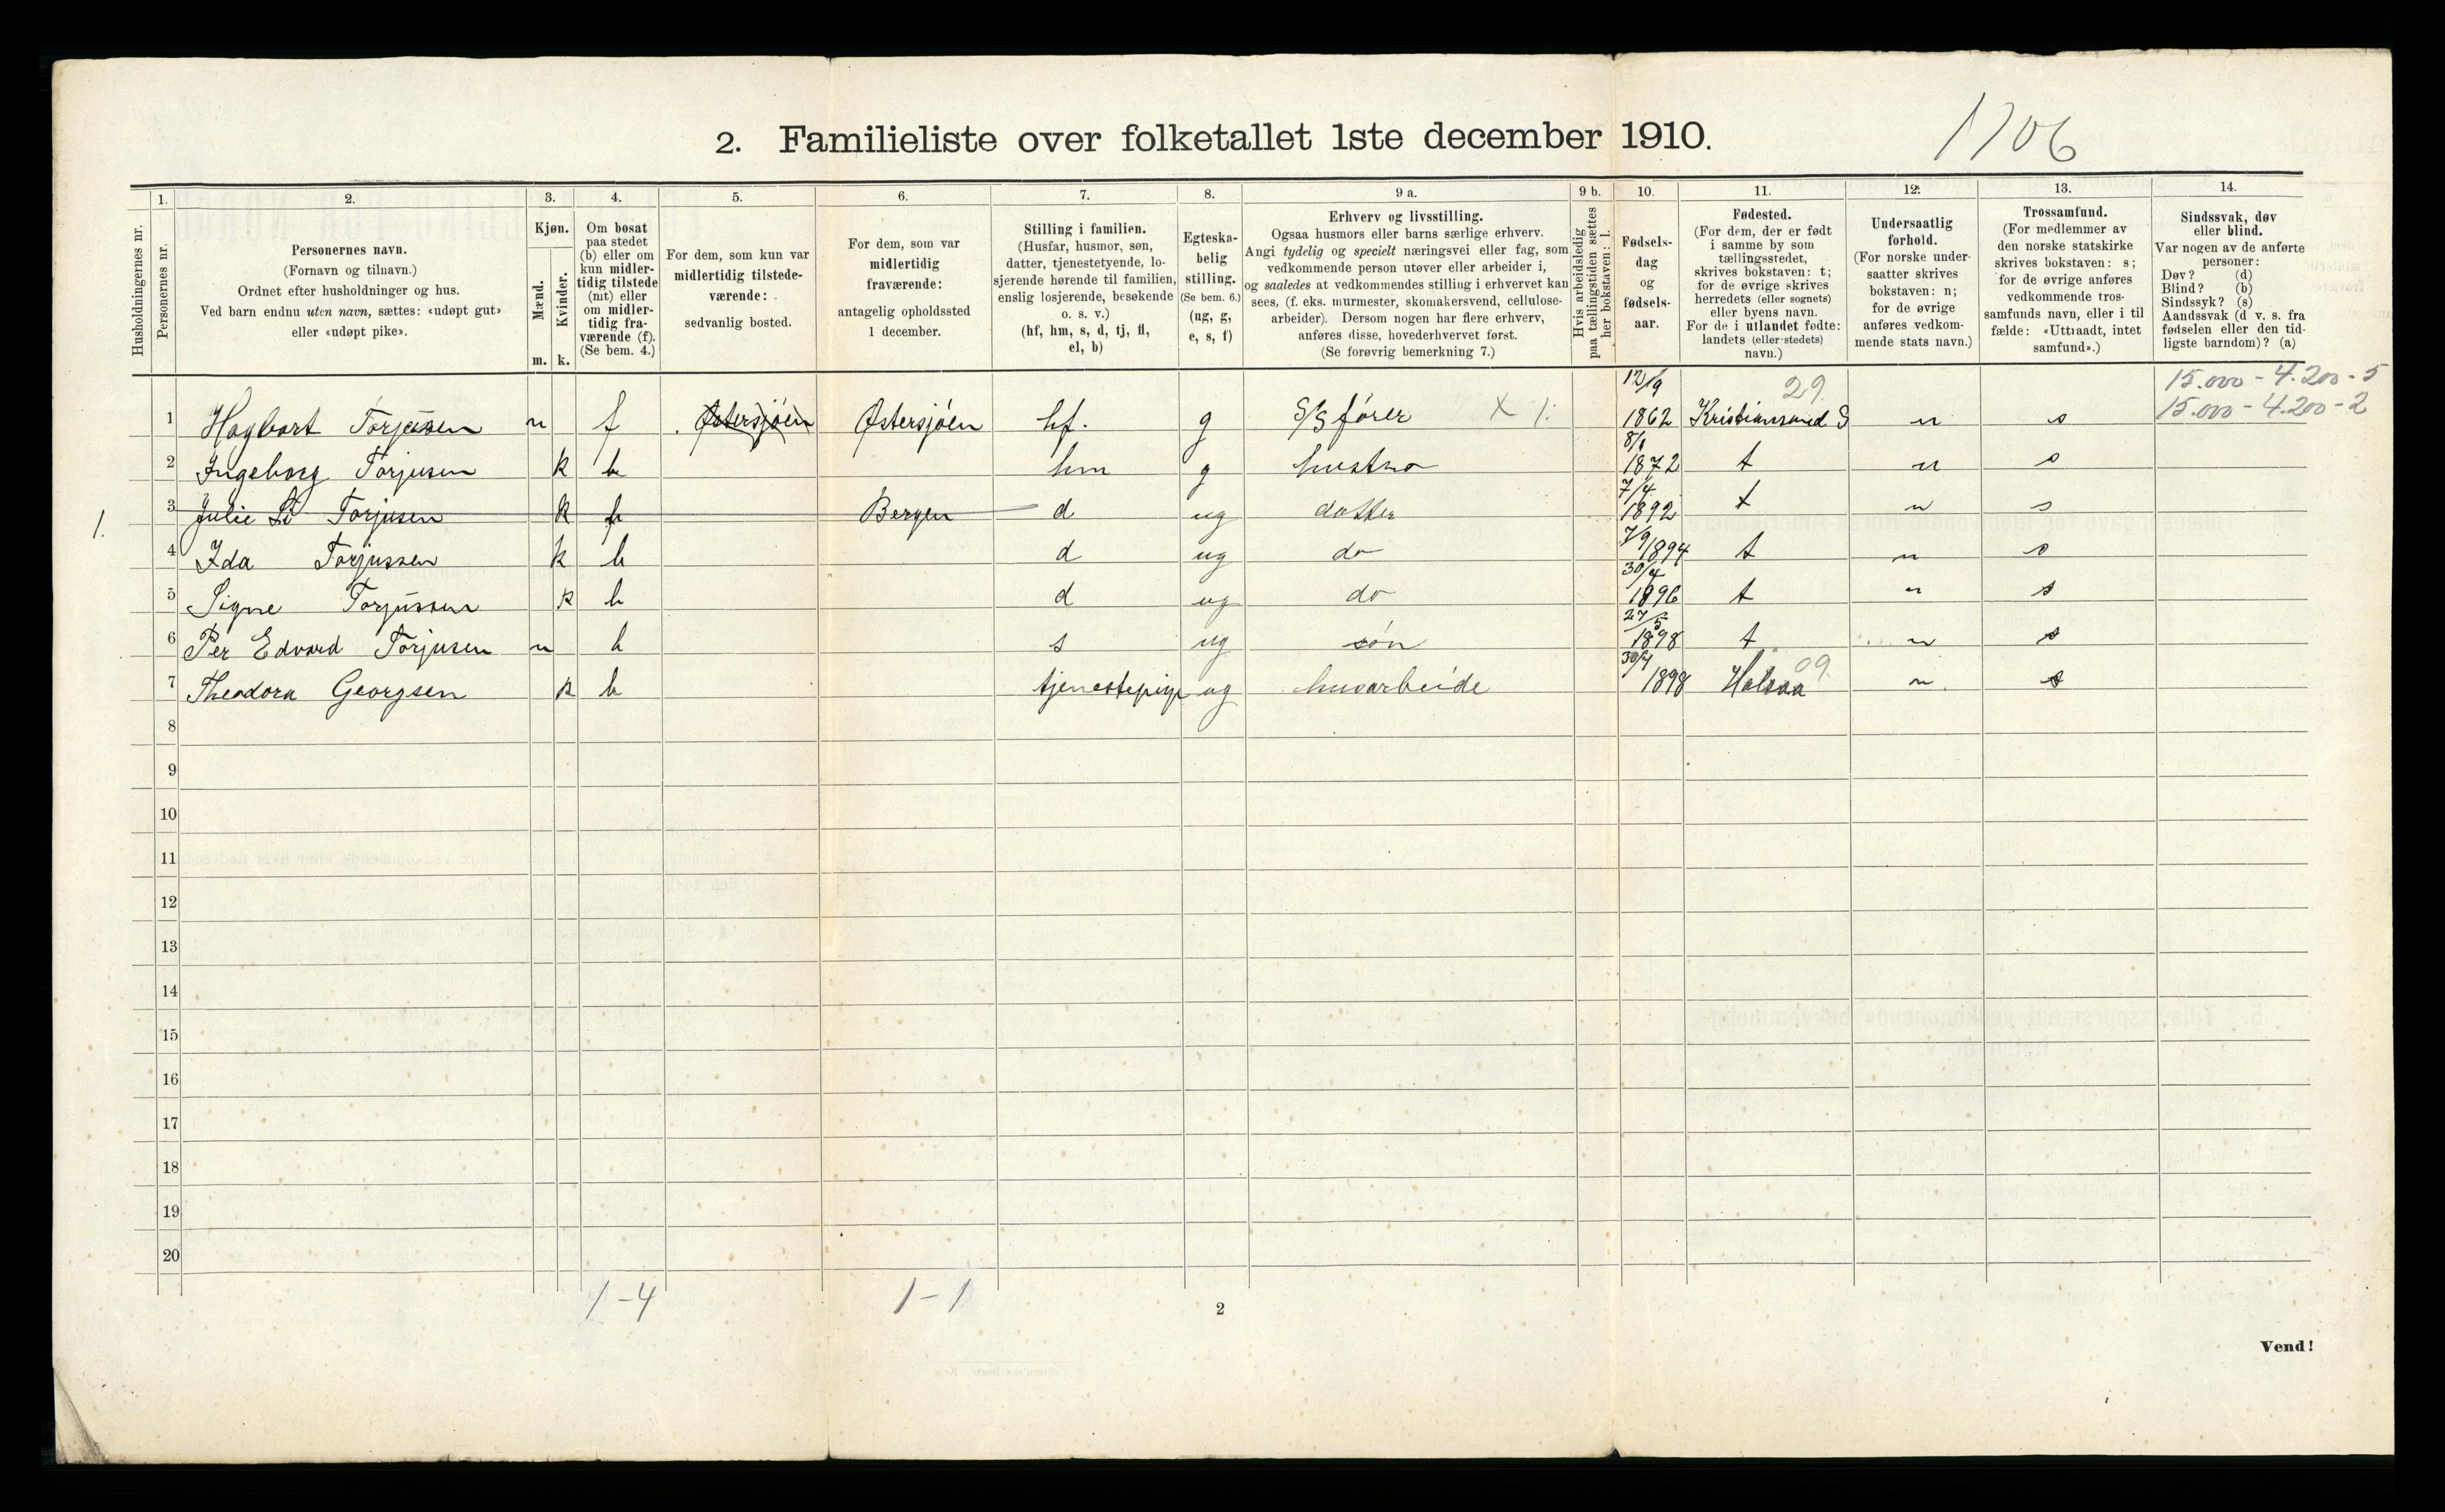 1706
2. Familieliste over folketallet 1ste december 1910.
Husholdningernes nr.
1. Personernes nr.
2. Personernes navn. (Fornavn og tilnavn.) Ordnet efter husholdninger og hus. Ved barn endnu uten navn, sættes: «udøpt gut» eller «udøpt pike».
3. Kjøn. Mænd. m. Kvinder. k.
4. Om bosat paa stedet (b) eller om kun midlertidig tilstede (mt) eller om midlertidig fraværende (f). (Se bem. 4.)
5. For dem, som kun var midlertidig tilstedeværende: sedvanlig bosted.
6. For dem, som var midlertidig fraværende: antagelig opholdssted 1 december.
7. Stilling i familien. (Husfar, husmor, søn, datter, tjenestetyende, losjerende hørende til familien, enslig losjerende, besøkende o. s. v.) (hf, hm, s, d, tj, fl, el, b)
8. Egteskabelig stilling. (Se bem. 6.) (ug, g, e, s, f)
9 a. Erhverv og livsstilling. Ogsaa husmors eller barns særlige erhverv. Angi tydelig og specielt næringsvei eller fag, som vedkommende person utøver eller arbeider i, og saaledes at vedkommendes stilling i erhvervet kan sees, (f. eks. murmester, skomakersvend, cellulosearbeider). Dersom nogen har flere erhverv, anføres disse, hovederhvervet først. (Se forøvrig bemerkning 7.)
9 b. Hvis arbeidsledig paa tællingstiden sættes her bokstaven: l.
10. Fødselsdag og fødselsaar.
11. Fødested. (For dem, der er født i samme by som tællingsstedet, skrives bokstaven: t; for de øvrige skrives herredets (eller sognets) eller byens navn. For de i utlandet fødte: landets (eller stedets) navn.)
12. Undersaatlig forhold. (For norske undersaatter skrives bokstaven: n; for de øvrige anføres vedkommende stats navn.)
13. Trossamfund. (For medlemmer av den norske statskirke skrives bokstaven: s; for de øvrige anføres vedkommende trossamfunds navn, eller i tilfælde: «Uttraadt, intet samfund».)
14. Sindssvak, døv eller blind. Var nogen av de anførte personer: Døv? (d) Blind? (b) Sindssyk? (s) Aandssvak (d. v. s. fra fødselen eller den tidligste barndom)? (a)
15.000 - 4.200 - 5
15.000 - 4.200 - 2
1 Hagbart Torjusen m f Østersjøen Østersjøen hf. g S/S fører X 1. 12/9 1862 29. Kristiansand S n s
2 Ingeborg Torjusen k b hm g hustro 8/1 1872 t n s
1. 3 Julie Torjusen k f Bergen d ug datter 7/4 1892 t n s
4 Ida Torjussen k b d ug do 7/9 1894 t n s
5 Signe Torjussen k b d ug do 30/4 1896 t n s
6 Per Edvard Torjusen m b s ug søn 27/5 1898 t n s
7 Theodora Georgsen k b tjenestepige ug husarbeide 30/4 1898 Halsaa 09. n s
8
9
10
11
12
13
14
15
16
17
18
19
20
1-4 1-1
2
Vend!